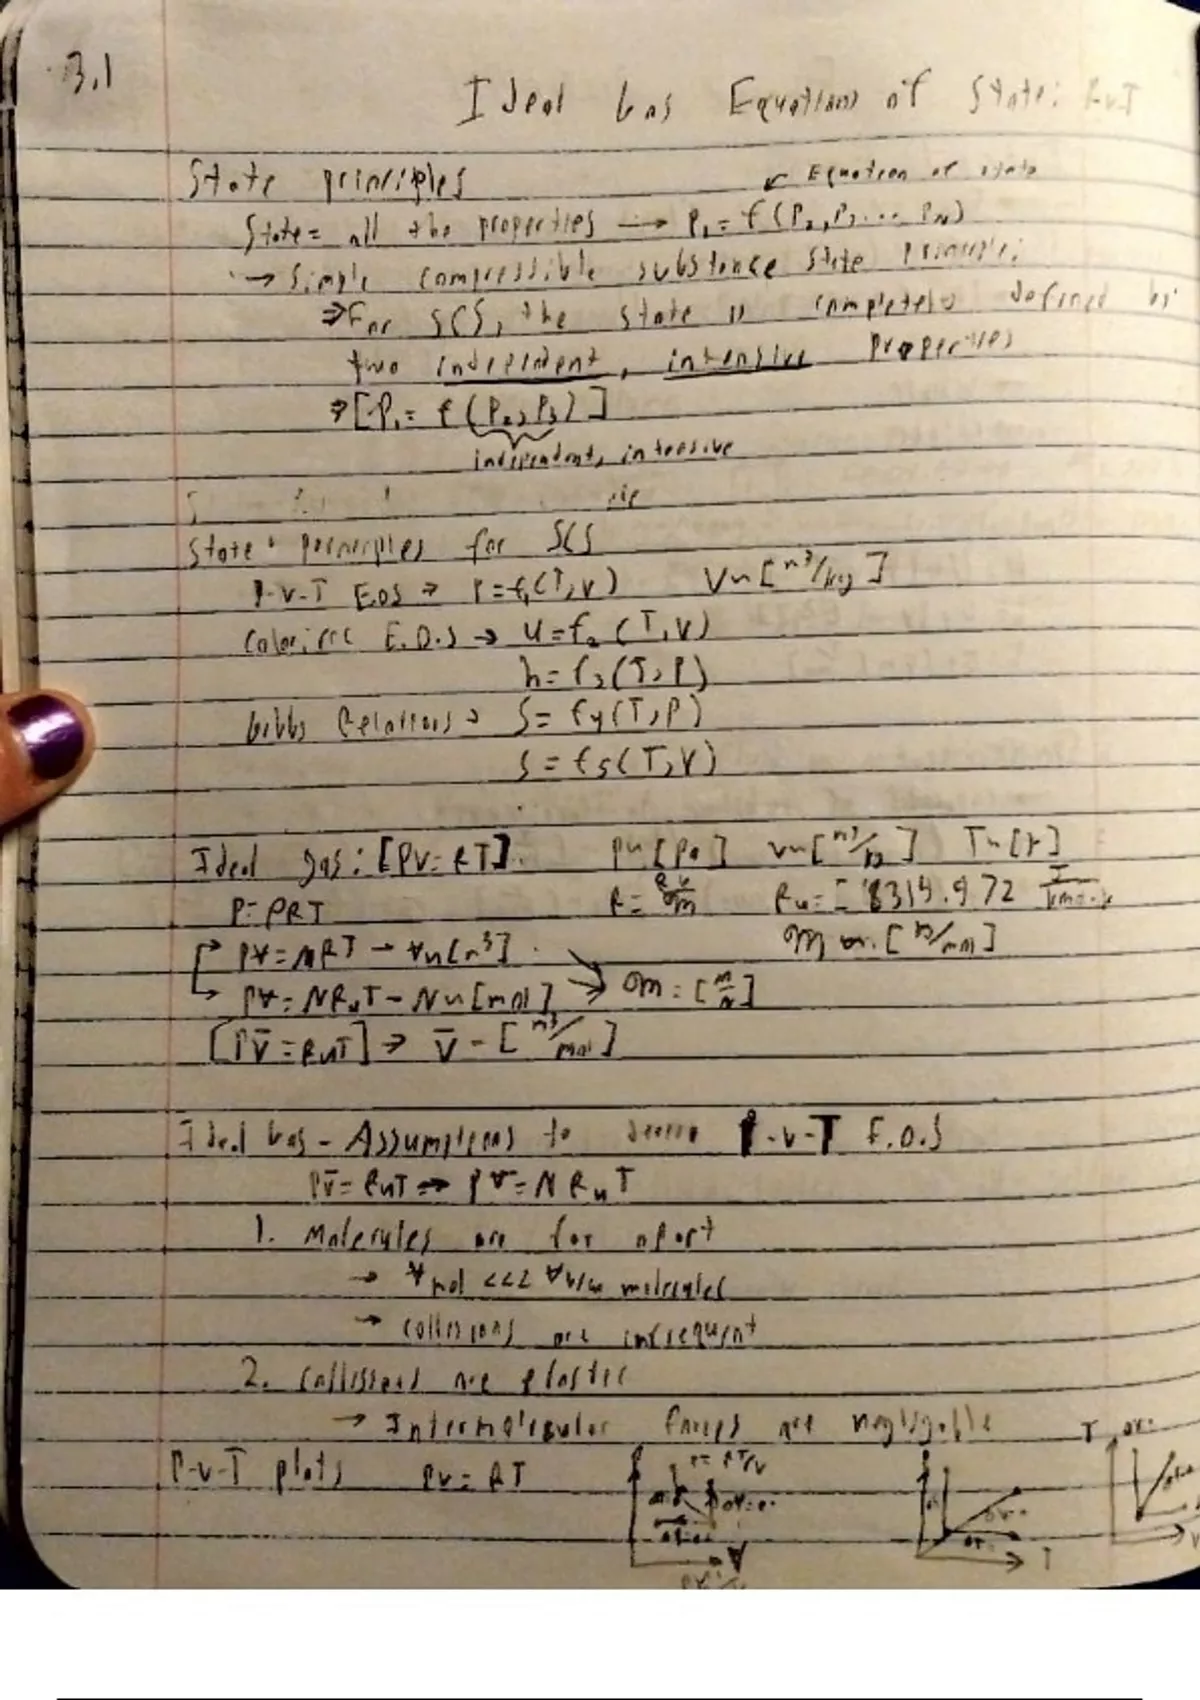 3.1
Ideal Gas Equations of State: PvT
State principles
↙ Equation of state
State = all the properties → P₁ = f(P₂, P₃... Pₙ)
→ Simple compressible substance State Principle:
⇒ For SCS, the state is completely defined by
two independent, intensive properties
⇒ [P₁ = f(P₂, P₃)]
independent, intensive
State principles for SCS
P-v-T E.O.S → P = f₁(T, v) V~[m³/kg]
Caloric E.O.S → u = f₂(T, v)
h = f₃(T, P)
Gibbs Relations → S = f₄(T, P)
S = f₅(T, v)
Ideal gas: [Pv = RT]. P~[Pa] v~[m³/kg] T~[K]
P = ρRT R = Ru/m Ru = 8314.472 J/kmol·K
PV = MRT → V~[m³] m [kg/mol]
PV = NRuT - N~[mol] → m = [m/N]
[Pv̄ = RuT] → v̄ - [m³/mol]
Ideal Gas - Assumptions to P-v-T E.O.S
Pv̄ = RuT ⇒ PV = NRuT
1. Molecules are far apart
→ Vmol <<< V b/w molecules
→ collisions are infrequent
2. Collissions are elastic
→ Intermolecular forces are negligable
P-v-T plots Pv = RT P = RT/v